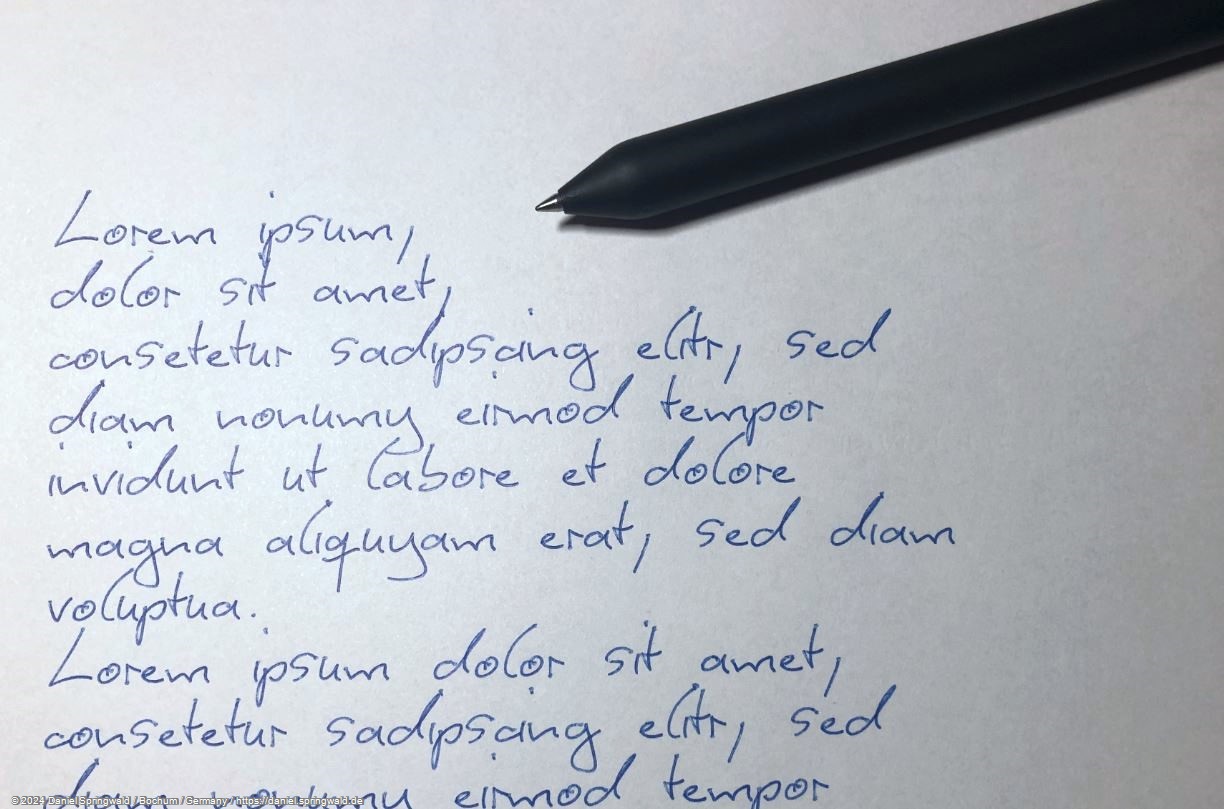 Lorem ipsum,
dolor sit amet,
consetetur sadipscing elitr, sed
diam nonumy eirmod tempor
invidunt ut labore et dolore
magna aliquyam erat, sed diam
voluptua.
Lorem ipsum dolor sit amet,
consetetur sadipscing elitr, sed
diam nonumy eirmod tempor
©2024 Daniel Springwald / Bochum / Germany / https://daniel.springwald.de